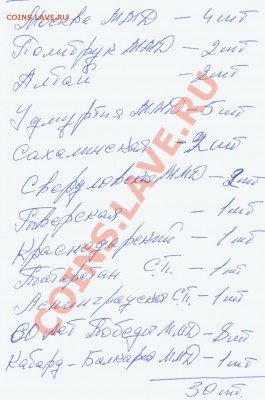 Москва ММД - 4 шт
Политрук ММД - 2 шт
Алтай - 2 шт
Удмуртия ММД - 5 шт
Сахалинская - 2 шт
Свердловская ММД - 2 шт
Тверская - 1 шт
Краснодарский - 1 шт
Татарстан С.П. - 1 шт
Ленинградская С.П. - 1 шт
60 лет Победы ММД - 8 шт
Кабард-Балкария ММД - 1 шт
30 шт.
COINS.LAVE.RU